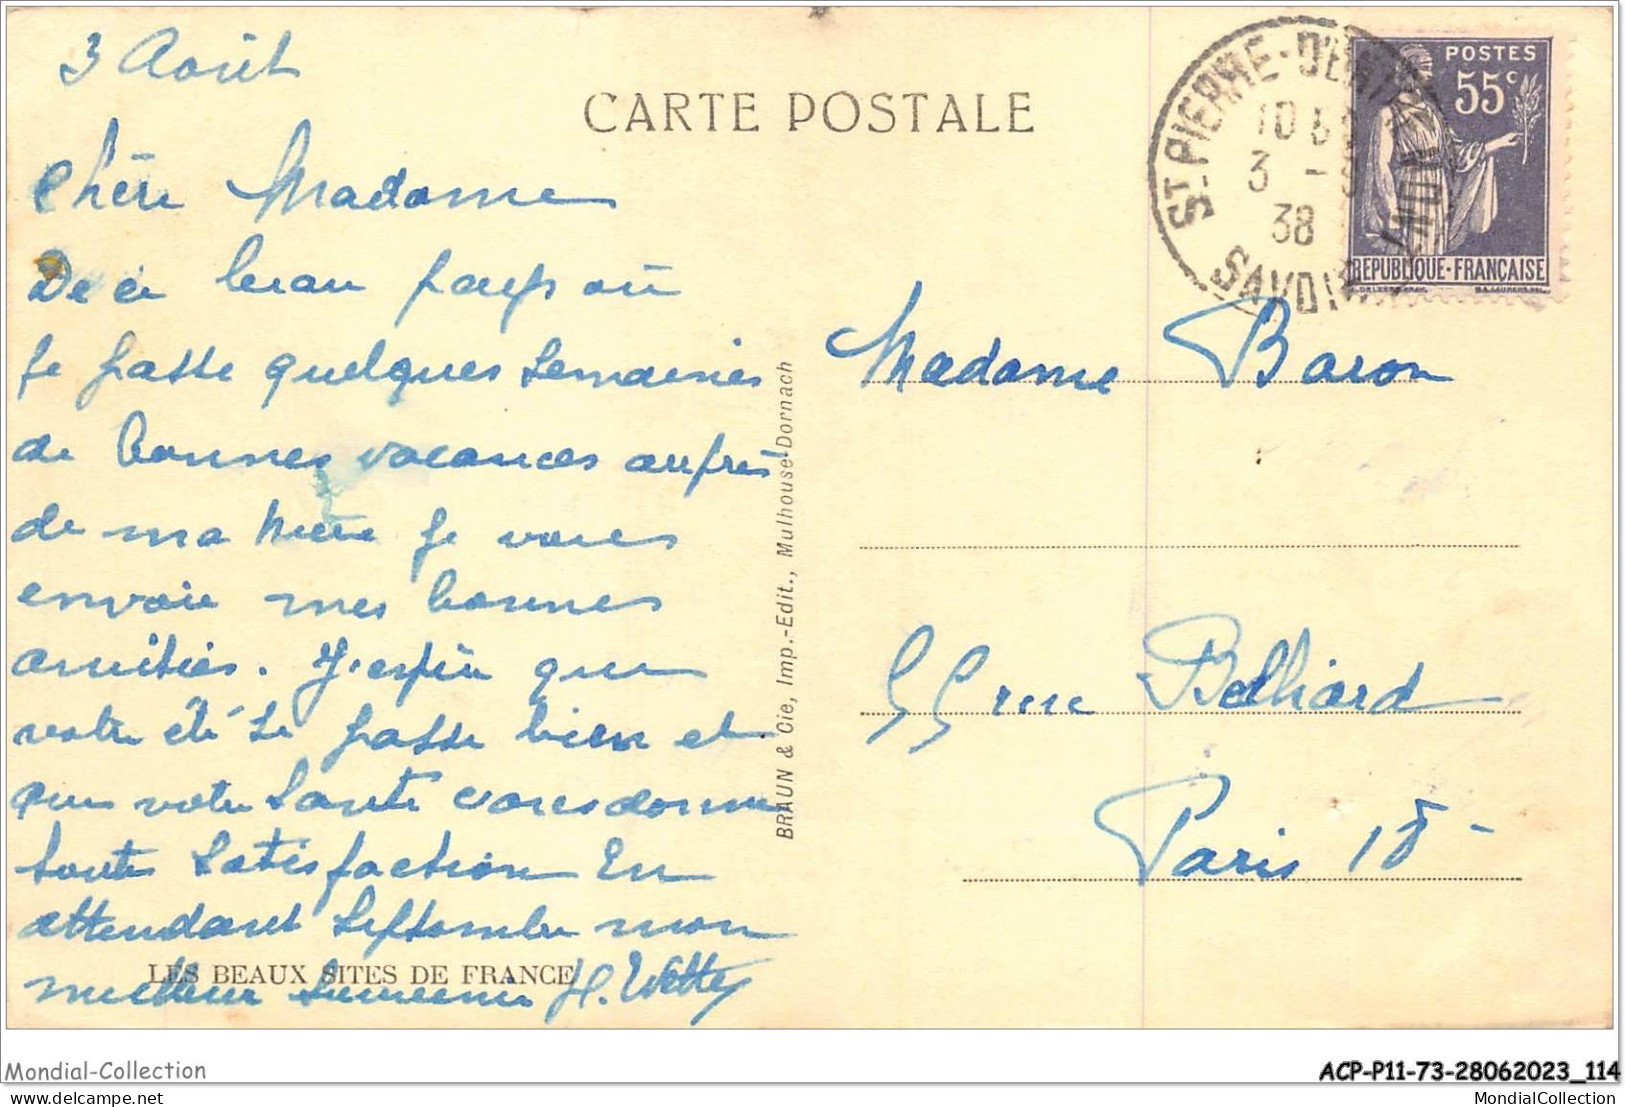 3 Août
CARTE POSTALE
Chère Madame
De ce beau pays où
je passe quelques semaines
de bonnes vacances auprès
de ma mère je vous
envoie mes bonnes
amitiés. J'espère que
votre été se passe bien et
que votre santé vous donne
toute satisfaction En
attendant septembre mon
meilleur souvenir H.
LES BEAUX SITES DE FRANCE
BRAUN & Cie, Imp.-Edit., Mulhouse-Dornach
ST PIERRE-D'ENTREMONT
3 -8
38
SAVOIE
POSTES
55c
REPUBLIQUE-FRANÇAISE
Madame Baron
55 rue Belliard
Paris 18-
Mondial-Collection
ACP-P11-73-28062023_114
mondial-collection.net
MondialCollection